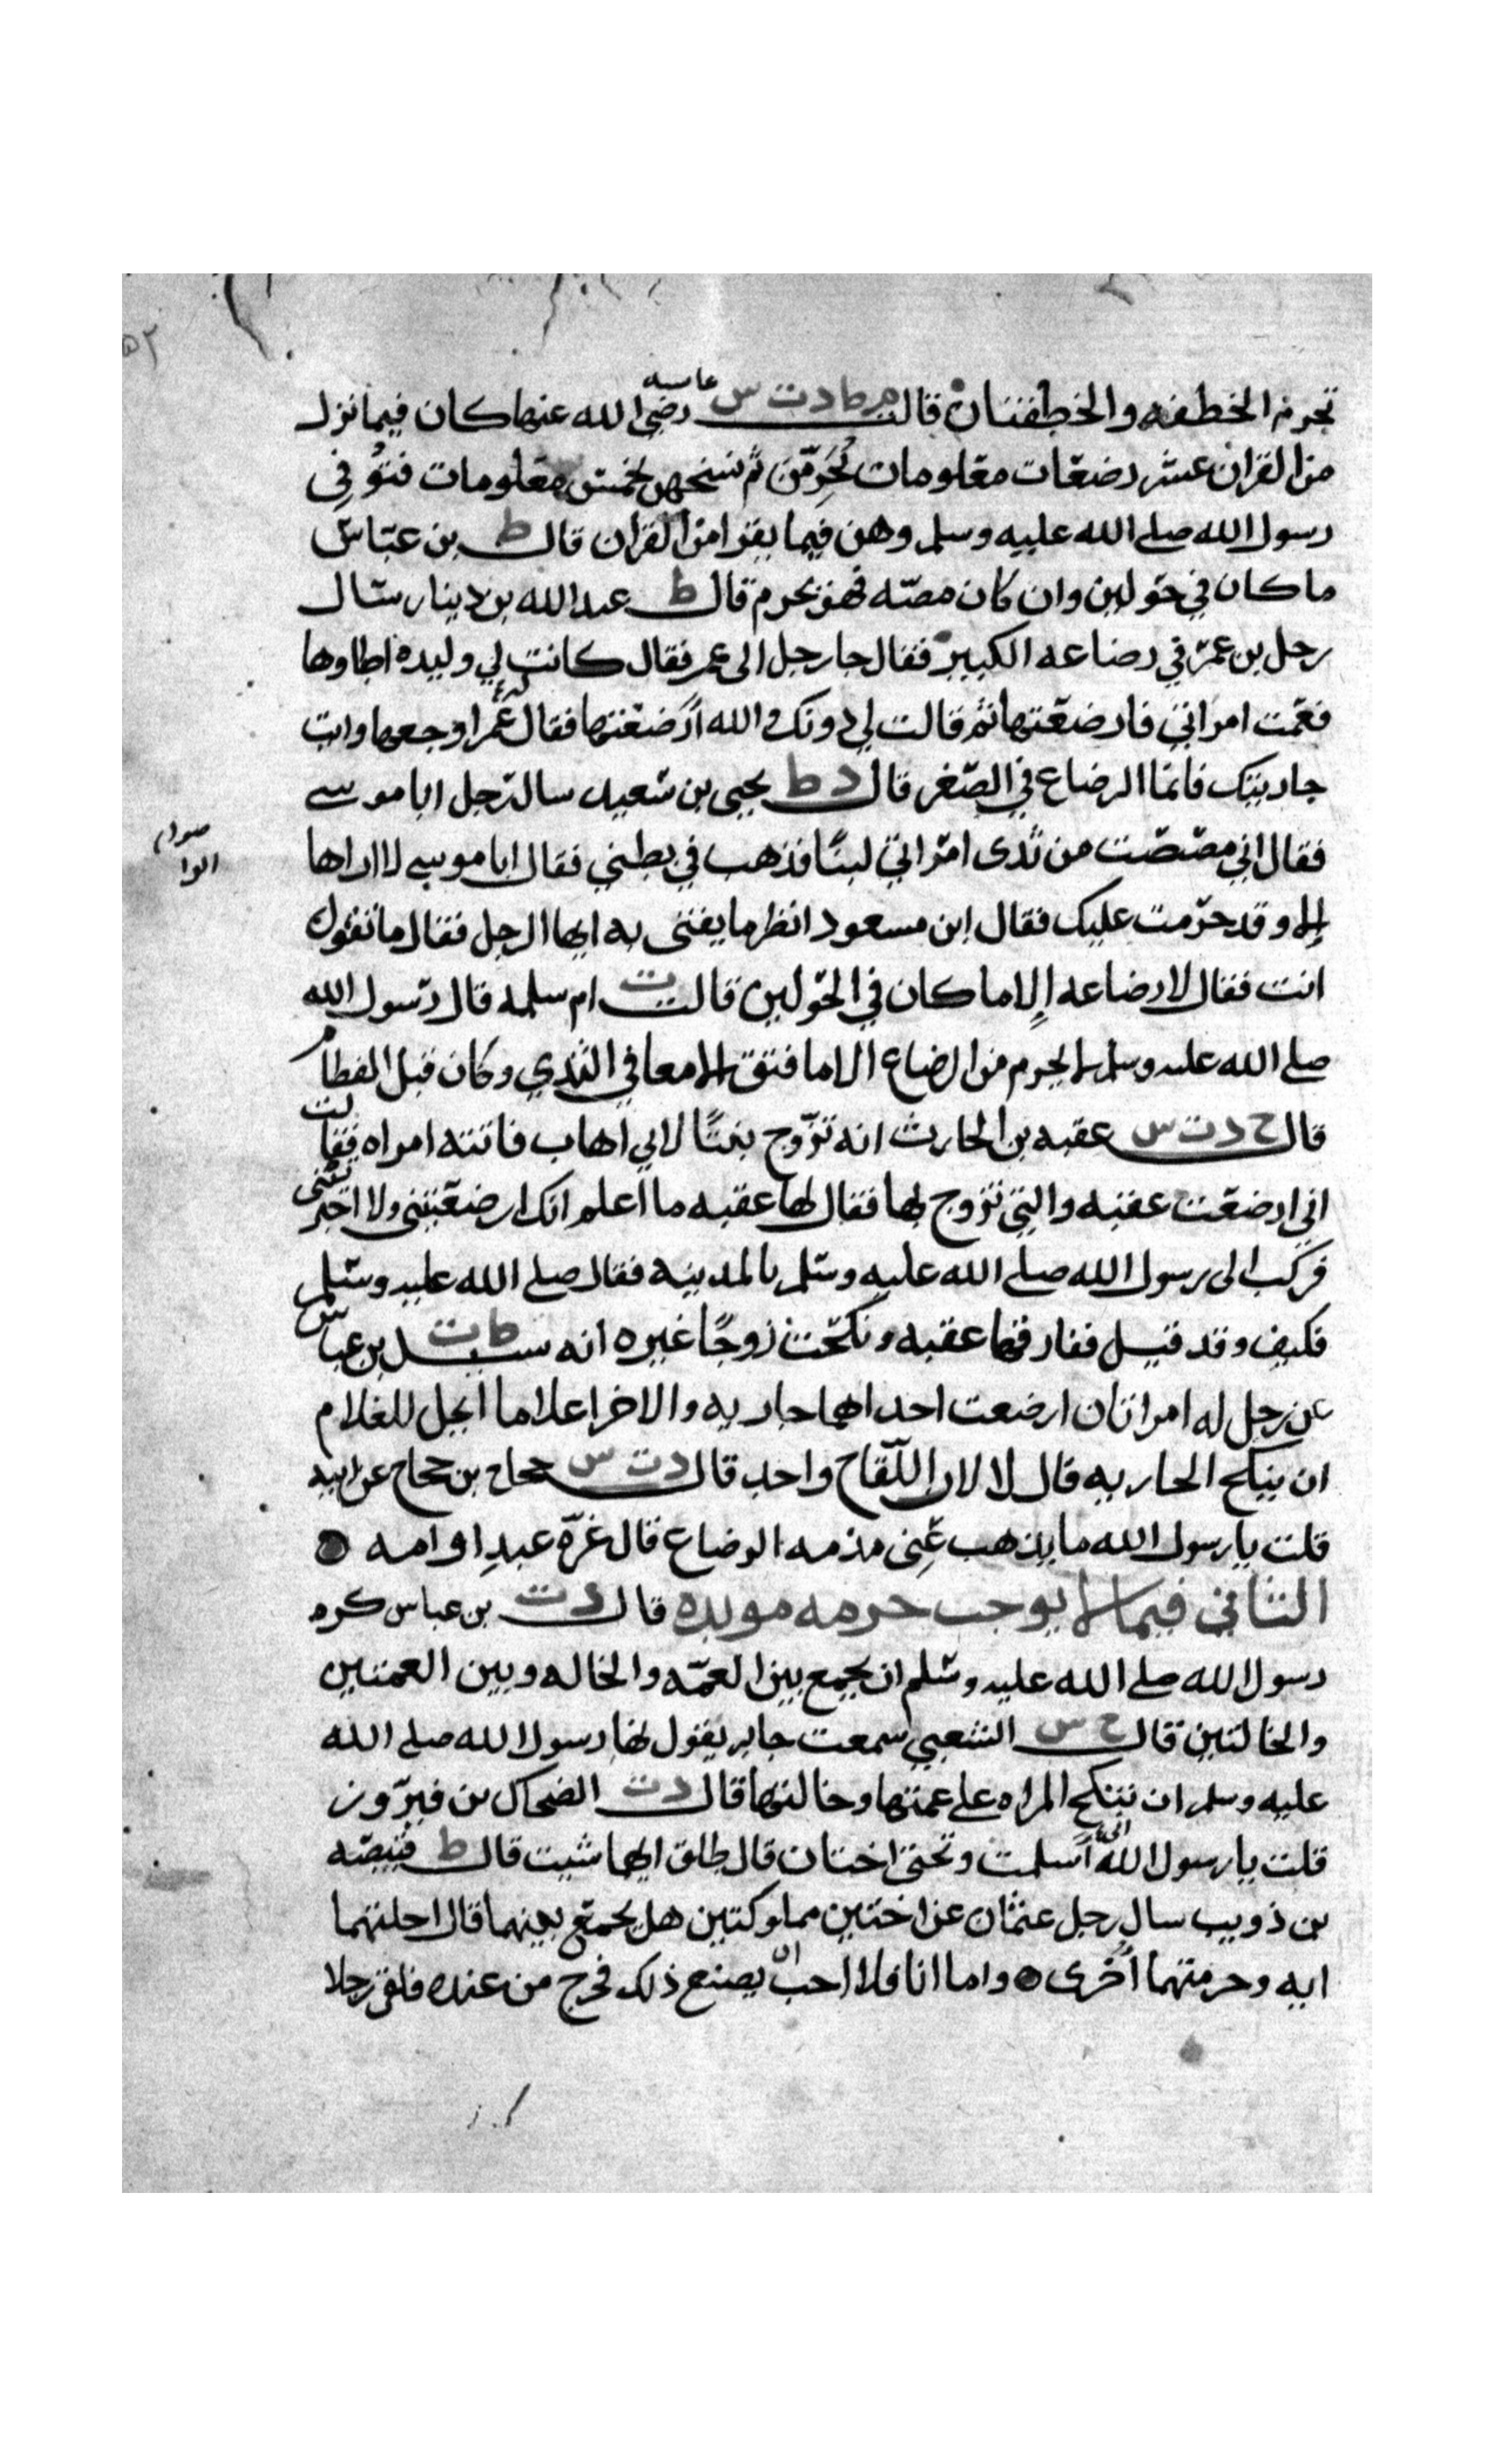 ٥٢
تحرم الخطفه والخطفتان قالت م ط د ت س عايسه رضي الله عنها كان فيما نزل
من القران عشر رضعات معلومات تحرمن ثم نسخهن بخمس معلومات فتوفى
رسول الله صلى الله عليه وسلم وهن فيما يقرا من القران قال ط بن عباس
ما كان في حولين وان كان مصه فهو يحرم قال ط عبد الله بن دينار سال
رجل بن عمر في رضاعه الكبير فقال جا رجل الى عمر فقال كانت لي وليده اطاوها
فعمت امراتي فارضعتها ثم قالت لي دونك والله ارضعتها فقال عمر اوجعها وات
جاريتك فانما الرضاع في الصغر قال د ط يحيى بن سعيد سال رجل ابا موسى
فقال اني مصصت من ثدى امراتي لبنا فذهب في بطني فقال ابا موسى لا اراها
صوابه
الا وقد حرمت عليك فقال ابن مسعود انظر ما يفتى به ايها الرجل فقال ما تقول
انت فقال لا رضاعه الا ما كان في الحولين قالت ت ام سلمه قال رسول الله
صلى الله عليه وسلم لا يحرم من الرضاع الا ما فتق الامعا في الثدي وكان قبل الفطام
قال خ د ت س عقبه بن الحارث انه تزوج بنتا لابي اهاب فاتته امراه فقالت
اني ارضعت عقبه والتي تزوج بها فقال لها عقبه ما اعلم انك ارضعتني ولا اخبرتني
فركب الى رسول الله صلى الله عليه وسلم بالمدينه فقال صلى الله عليه وسلم
فكيف وقد قيل ففارقها عقبه ونكحت زوجا غيره انه سيل ط ت بن عباس
عن رجل له امراتان ارضعت احداهما جاريه والاخرا غلاما ايحل للغلام
ان ينكح الجاريه قال لا لان اللقاح واحد قال د ت س حجاج بن حجاج عن ابيه
قلت يا رسول الله ما يذهب عني مذمه الرضاع قال غره عبد او امه
الثاني فيما لا يوجب حرمه موبده قال د ت بن عباس كره
رسول الله صلى الله عليه وسلم ان يجمع بين العمه والخاله وبين العمتين
والخالتين قال خ س الشعبي سمعت جابر يقول نها رسول الله صلى الله
عليه وسلم ان تنكح المراه على عمتها وخالتها قال د ت الضحاك بن فيروز
قلت يا رسول الله اني اسلمت وتحتي اختان قال طلق ايهما شيت قال ط قبيصه
بن ذويب سال رجل عثمان عن اختين مملوكتين هل يجمع بينهما قال احلتهما
ايه وحرمتهما اخرى واما انا فلا احب ان يصنع ذلك فخرج من عنده فلقى رجلا